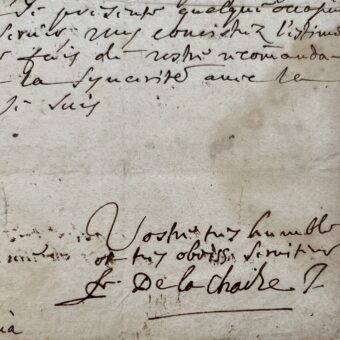 se présente quelque occasio
vous conoistrez l'estime
fais de vostre recomanda-
la syncerité avec le
je suis
Vostre tres humble
et tres obeiss serviteur
fr De la Chaize
à